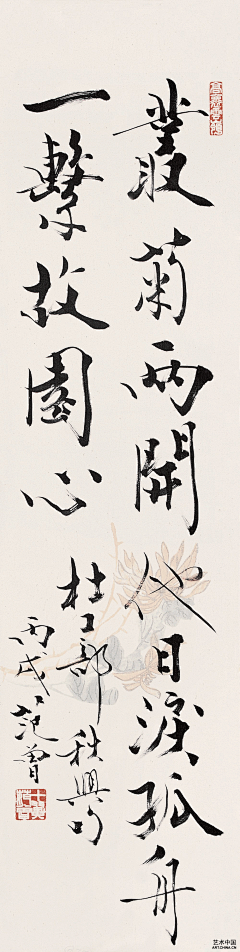 叢菊兩開他日淚孤舟
一繫故園心
杜工部秋興句
丙戌范曾
艺术中国
ARTCHINA.CN